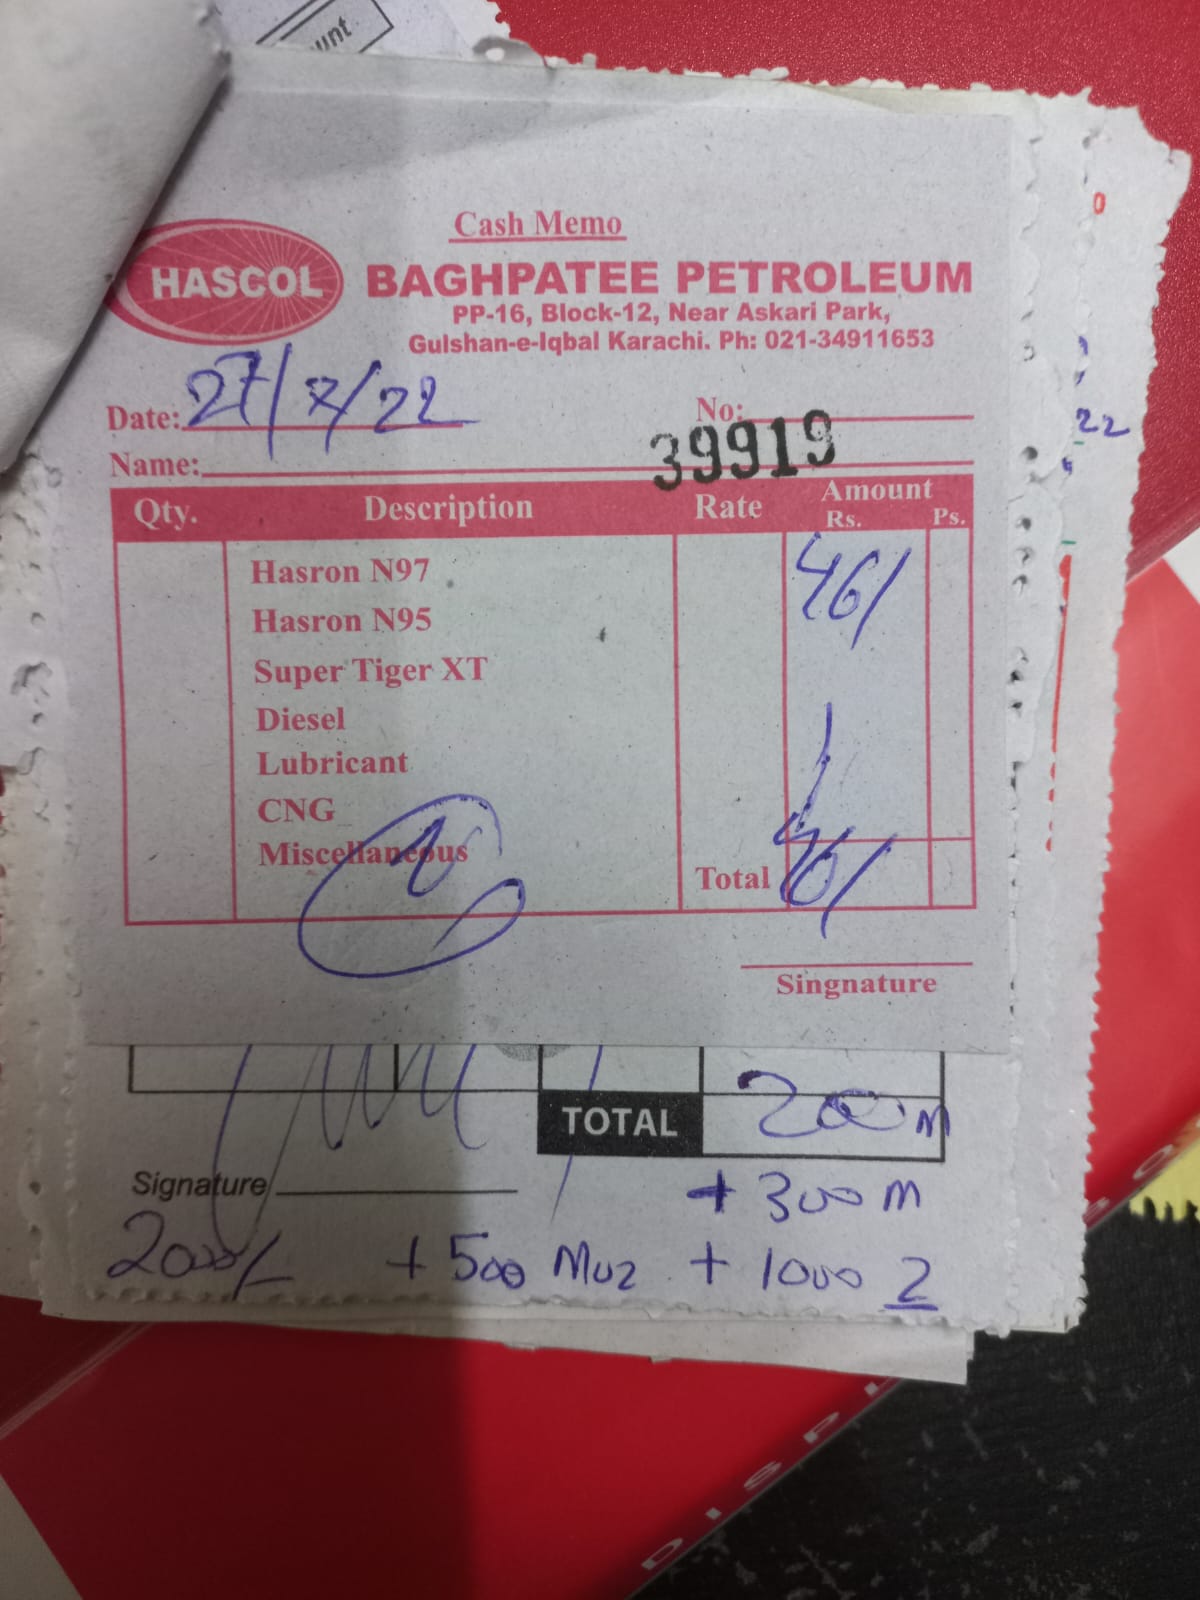 unt
Cash Memo
HASCOL
BAGHPATEE PETROLEUM
PP-16, Block-12, Near Askari Park,
Gulshan-e-Iqbal Karachi. Ph: 021-34911653
Date: 27/7/22 No:
39919
Name:
Qty. Description Rate Amount
Rs. Ps.
Hasron N97 461
Hasron N95
Super Tiger XT
Diesel
Lubricant
CNG
Miscellaneous
Total 461
Singnature
22
TOTAL 200 M
Signature + 300 M
2000/- + 500 Muz + 1000 2
DISPL